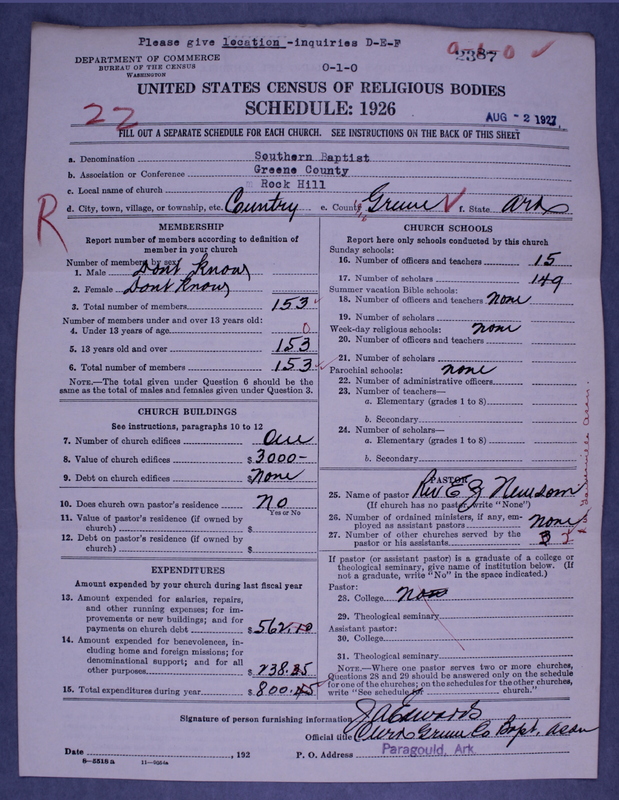 Please give location -inquiries D-E-F
DEPARTMENT OF COMMERCE
BUREAU OF THE CENSUS
WASHINGTON
0-1-0
2387
UNITED STATES CENSUS OF RELIGIOUS BODIES
SCHEDULE: 1926
22
AUG - 2 1927
FILL OUT A SEPARATE SCHEDULE FOR EACH CHURCH. SEE INSTRUCTIONS ON THE BACK OF THIS SHEET
a. Denomination Southern Baptist
b. Association or Conference Greene County
c. Local name of church Rock Hill
d. City, town, village, or township, etc. Cuntry e. County Greene f. State Ark
R
MEMBERSHIP
Report number of members according to definition of
member in your church
Number of members by sex:
1. Male Dont Know
2. Female Dont Know
3. Total number of members 153
Number of members under and over 13 years old:
4. Under 13 years of age 0
5. 13 years old and over 153
6. Total number of members 153
NOTE.—The total given under Question 6 should be the
same as the total of males and females given under Question 3.
CHURCH BUILDINGS
See instructions, paragraphs 10 to 12
7. Number of church edifices One
8. Value of church edifices $ 3000-
9. Debt on church edifices $ None
10. Does church own pastor's residence? No
Yes or No
11. Value of pastor's residence (if owned by
church) $
12. Debt on pastor's residence (if owned by
church) $
EXPENDITURES
Amount expended by your church during last fiscal year
13. Amount expended for salaries, repairs,
and other running expenses; for im-
provements or new buildings; and for
payments on church debt $ 562.10
14. Amount expended for benevolences, in-
cluding home and foreign missions; for
denominational support; and for all
other purposes $ 238.35
15. Total expenditures during year $ 800.45
CHURCH SCHOOLS
Report here only schools conducted by this church
Sunday schools:
16. Number of officers and teachers 15
17. Number of scholars 149
Summer vacation Bible schools:
18. Number of officers and teachers None
19. Number of scholars
Week-day religious schools: None
20. Number of officers and teachers
21. Number of scholars
Parochial schools: None
22. Number of administrative officers
23. Number of teachers—
a. Elementary (grades 1 to 8)
b. Secondary
24. Number of scholars—
a. Elementary (grades 1 to 8)
b. Secondary
PASTOR
25. Name of pastor Rev E J Newsom
(If church has no pastor, write "None")
26. Number of ordained ministers, if any, em-
ployed as assistant pastors None
27. Number of other churches served by the
pastor or his assistants 3
If pastor (or assistant pastor) is a graduate of a college or
theological seminary, give name of institution below. (If
not a graduate, write "No" in the space indicated.)
Pastor:
28. College
29. Theological seminary
Assistant pastor:
30. College
31. Theological seminary
NOTE.—Where one pastor serves two or more churches,
Questions 28 and 29 should be answered only on the schedule
for one of the churches; on the schedules for the other churches,
write "See schedule for church."
Signature of person furnishing information J A Edwards
Official title Clerk Greene Co Bapt. Assn
Date , 192 P. O. Address Paragould, Ark.
8-5518a